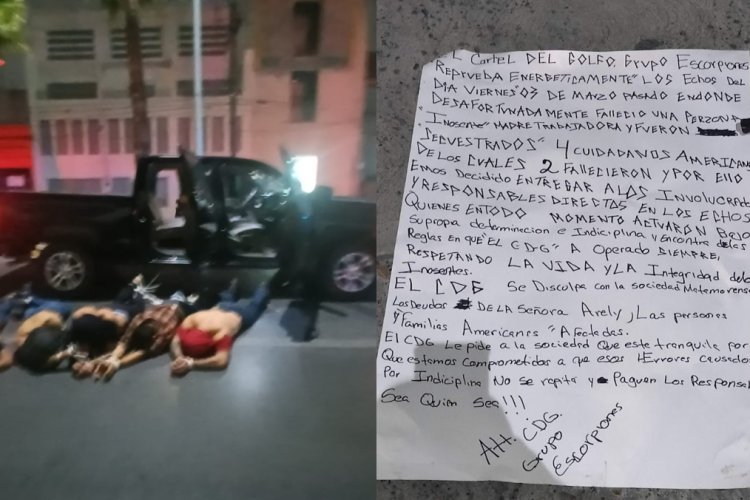 L CARTEL DEL GOLFO, GRUPO ESCORPIONES
REPRUEBA ENERGETICAMENTE "LOS ECHOS DEL
DIA VIERNES "03 DE MARZO PASADO ENDONDE
DESAFORTUNADAMENTE FALLECIO UNA PERZONA
"INOSENTE" MADRE TRABAJADORA Y FUERON
SECUESTRADOS" 4 CUIDADANOS AMERICAN
DE LOS CUALES 2 FALLECIERON Y POR ELLO
EMOS DECIDIDO ENTREGAR A LOS INVOLUCRADO
Y RESPONSABLES DIRECTOS EN LOS ECHOS
QUIENES EN TODO MOMENTO ACTUARON BAJO
SU PROPA DETERMINACION E INDICIPLINA Y ENCONTRA DE LAS
REGLAS EN QUE "EL CDG" A OPERADO SIEMPRE,
RESPETANDO LA VIDA Y LA INTEGRIDAD DE LO
INOSENTES.
EL CDG SE DISCULPA CON LA SOCIEDAD MATAMORENS
LOS DEUDOS DE LA SEÑORA ARELY, LAS PERSONES
Y FAMILIAS AMERICANES "AFECTADAS.
EL CDG LE PIDE A LA SOCIEDAD QUE ESTE TRANQUILA POR
QUE ESTAMOS COMPROMETIDOS A QUE ESOS ERRORES CAUSADOS
POR INDICIPLINA NO SE REPITA Y PAGUEN LOS RESPONSA
SEA QUIEN SEA!!!
ATT. CDG.
GRUPO
ESCORPIONES